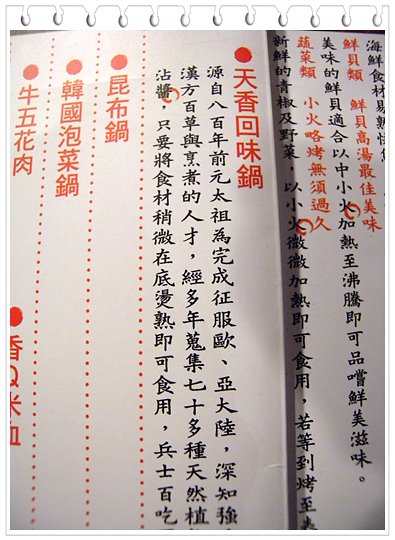 海鮮食材易熟快
鮮貝類 鮮貝高湯最佳美味
美味的鮮貝適合以中小火加熱至沸騰即可品嚐鮮美滋味。
蔬菜類 小火略烤無須過久
新鮮的青椒及野菜，以小火微微加熱即可食用，若等到烤至表
●天香回味鍋
源自八百年前元太祖為完成征服歐、亞大陸，深知強
漢方百草與烹煮的人才，經多年蒐集七十多種天然植
沾醬，只要將食材稍微在底燙熟即可食用，兵士百吃
●昆布鍋
●韓國泡菜鍋
●牛五花肉
●香Q米血